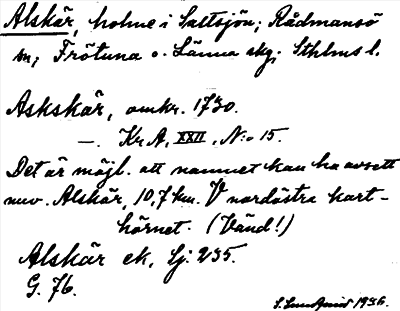 Alskär, holme i Saltsjön; Rådmansö
sn, Frötuna o. Länna skg, Sthlms l.
Askskär, omkr. 1730.
—. Kr.A, XXII, N:o 15.
Det är möjl. att namnet kan ha avsett
nuv. Alskär, 10,7 km. V nordöstra kart-
hörnet. (Vänd!)
Alskär ek, Sj. 235.
G. 76.
S. Lundqvist 1936.